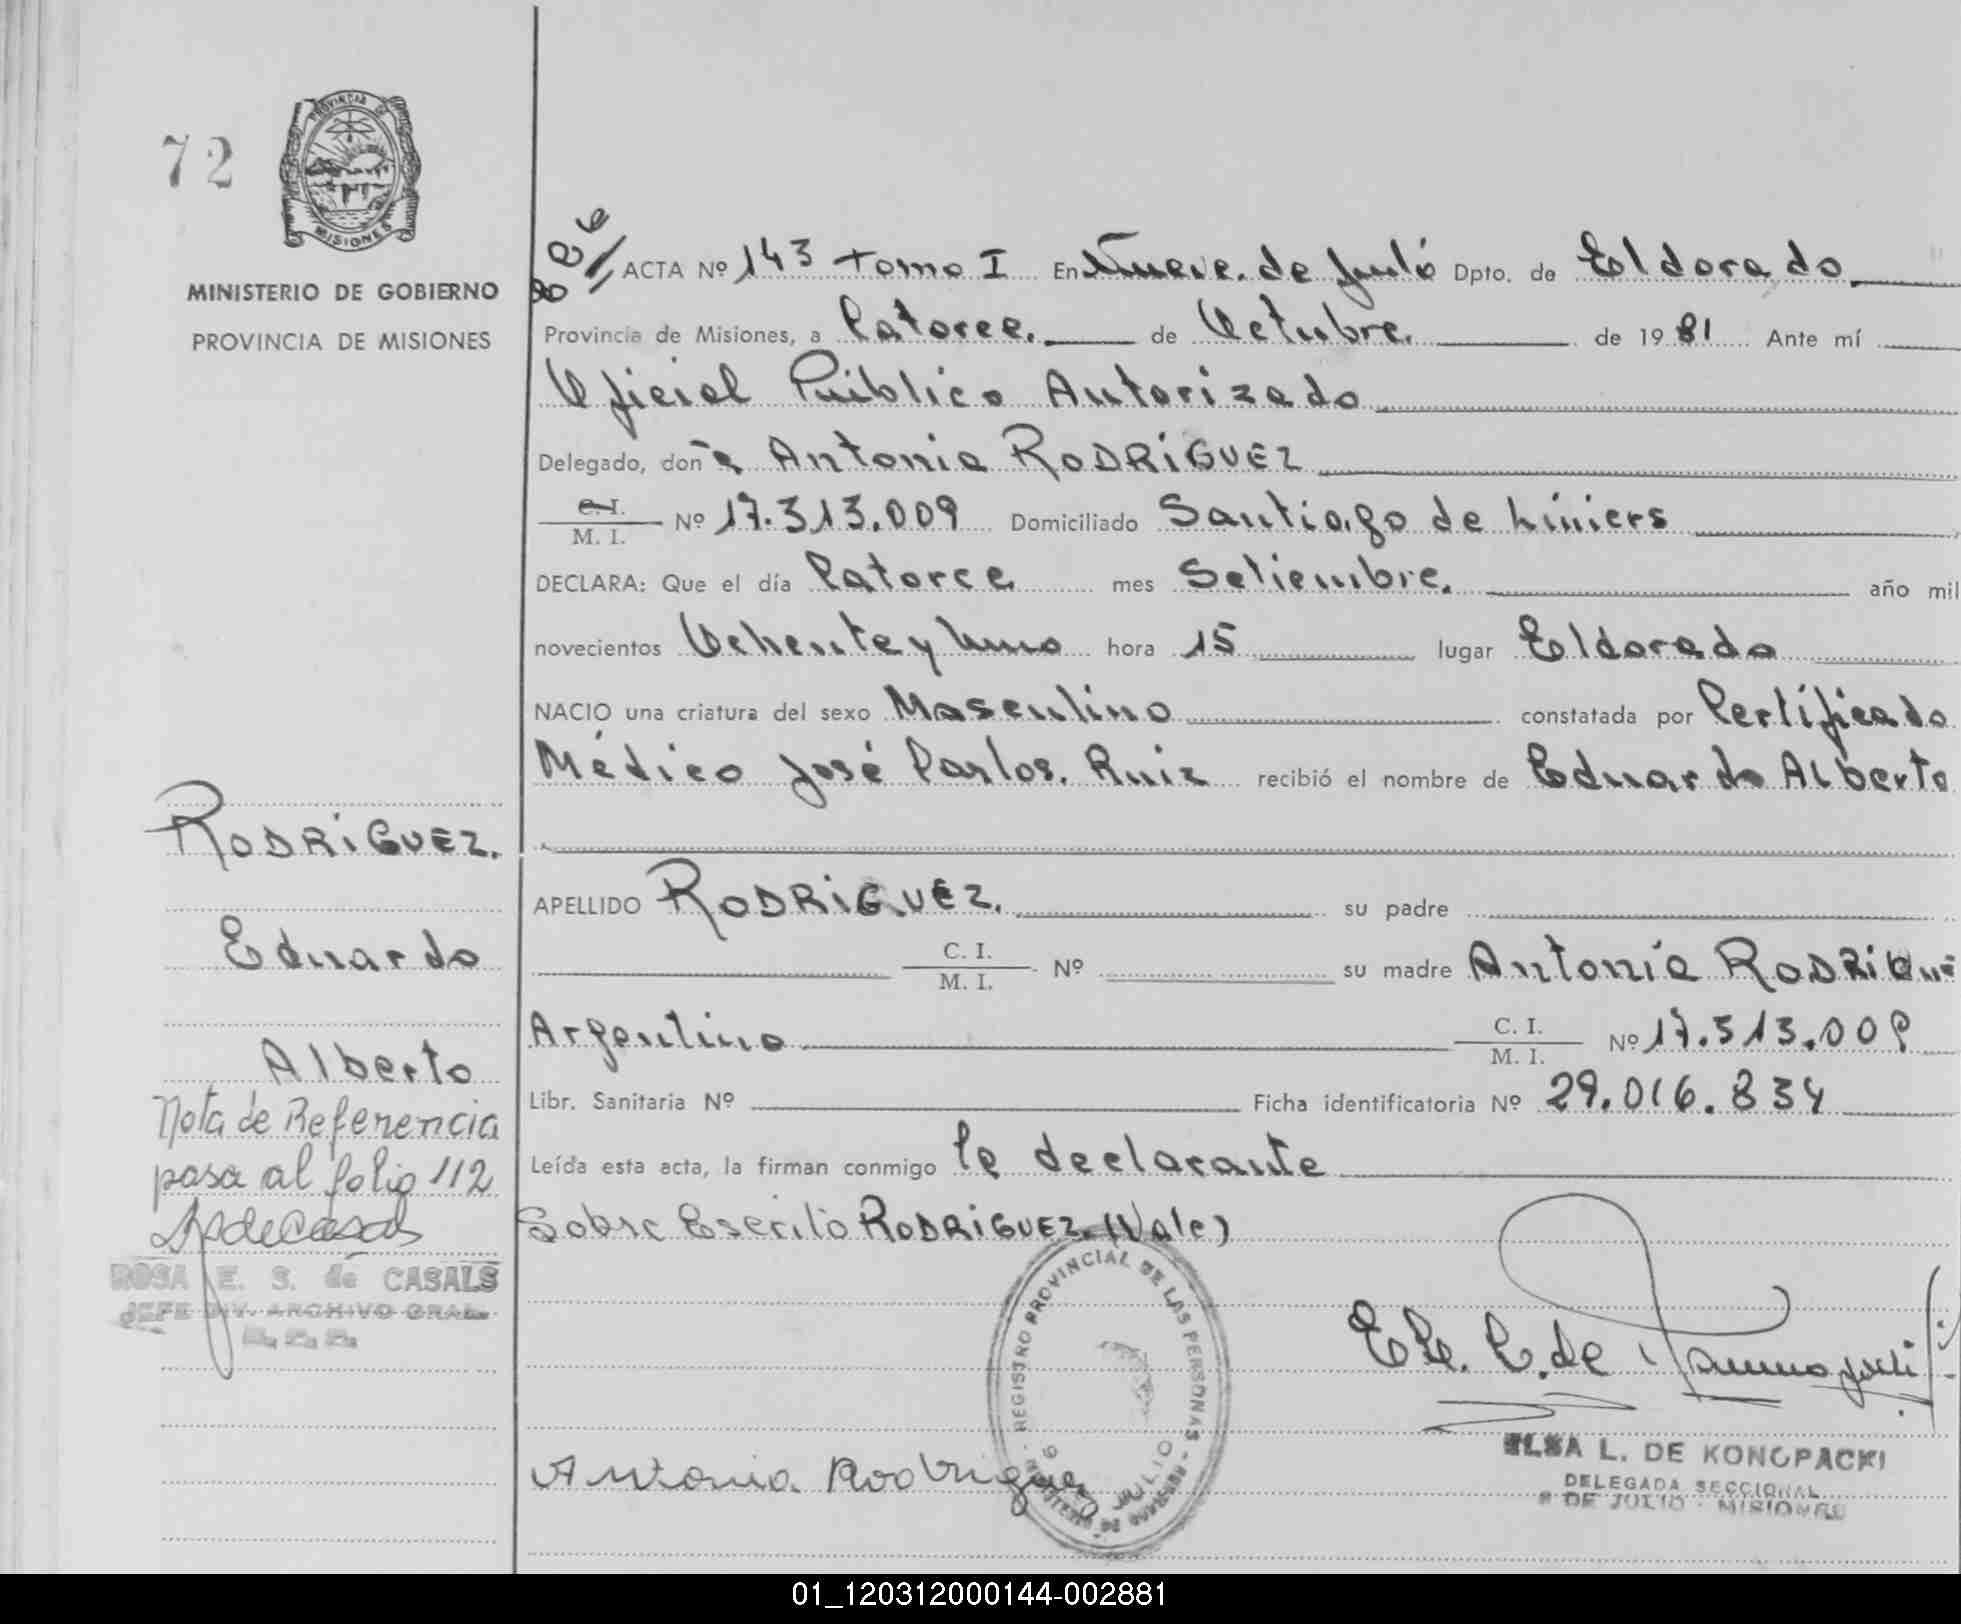 72
PROVINCIA DE
MISIONES
MINISTERIO DE GOBIERNO
PROVINCIA DE MISIONES
ACTA Nº 143 tomo I En Nueve de Julio Dpto. de Eldorado
Provincia de Misiones, a Catorce. de Octubre. de 1981 Ante mí
Oficial Público Autorizado
Delegado, doña Antonia RODRIGUEZ
C. I.
M. I. Nº 17.313.009 Domiciliado Santiago de Liniers
DECLARA: Que el día Catorce mes Setiembre. año mil
novecientos Ochenta y Uno hora 15 lugar Eldorado
NACIO una criatura del sexo Masculino constatada por Certificado
Médico José Carlos. Ruiz recibió el nombre de Eduardo Alberto
APELLIDO RODRIGUEZ. su padre
C. I.
M. I. Nº su madre Antonia RODRIGUE
Argentina C. I.
M. I. Nº 17.313.009
Libr. Sanitaria Nº Ficha identificatoria Nº 29.016.834
Leída esta acta, la firman conmigo la declarante
Sobre Escrito RODRIGUEZ. (Vale)
RODRIGUEZ.
Eduardo
Alberto
Nota de Referencia
pasa al folio 112
ROSA E. S. de CASALS
JEFE DIV. ARCHIVO GRAL.
REGISTRO PROVINCIAL DE LAS PERSONAS
9 JULIO
Antonia Rodriguez
ELSA L. DE KONOPACKI
DELEGADA SECCIONAL
9 DE JULIO - MISIONES
01_120312000144-002881